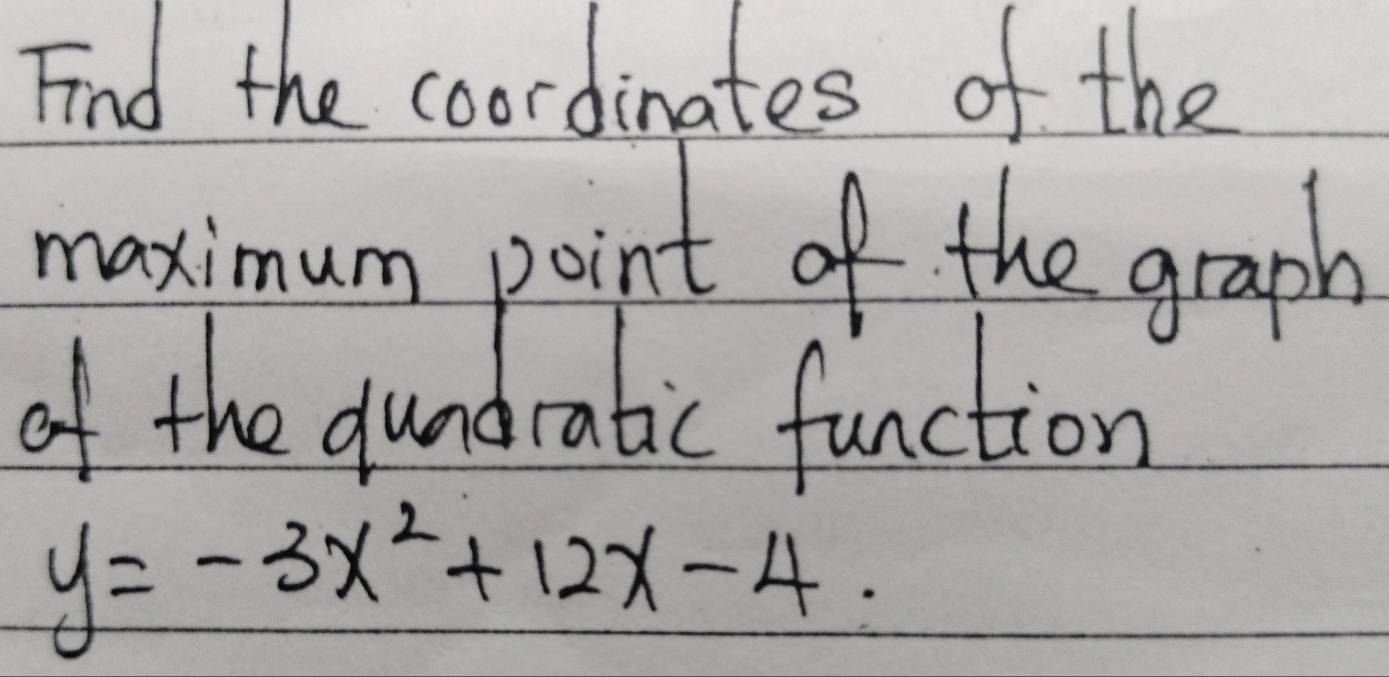 Find the coordinates of the
maximum point of the graph
of the quadratic function
y = -3x² + 12x - 4.